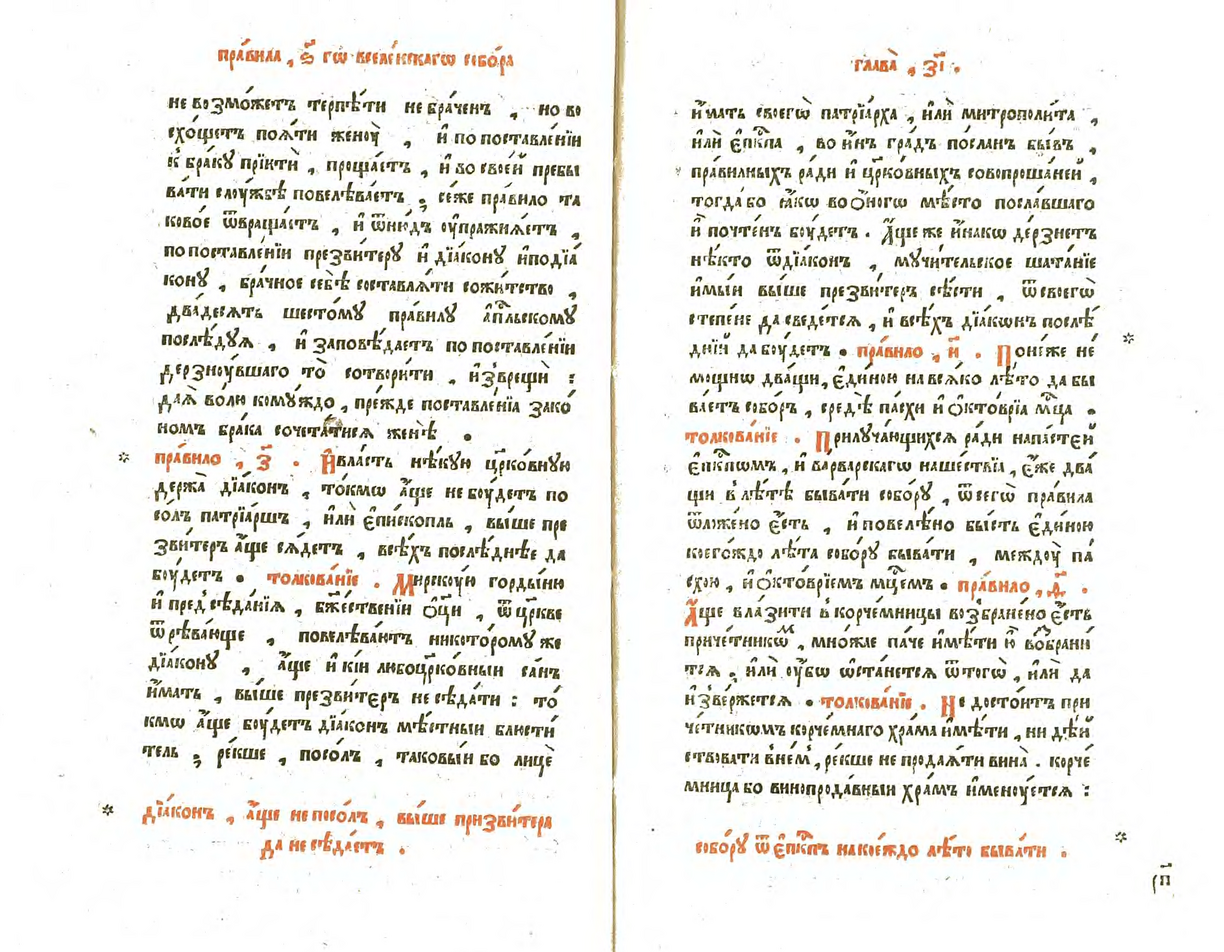 пра́вила , ѕ҃ гѡ вселе́нскагѡ собо́ра
не возмо́жетъ терпѣ́ти не бра́ченъ , но во
схо́щетъ поѧ́ти женоу̀ , и҆ по поставле́нїи
к̾ бра́ку прїи́ти , проща́етъ , и҆ во свое́й пребы
ва́ти слоу́жбѣ повелѣва́етъ ; се́же пра́вило та
ково́е ѿвраща́етъ , и҆ ѿню́дъ оу҆пражнѧ́етъ ,
по поставле́нїи презви́теру и҆ дїа́кону и҆подїа́
кону , бра́чное себѣ̀ составлѧ́ти сожи́тство ,
два́десѧть шесто́му пра́вилу а҆пⷭ҇льскому
послѣ́дуѧ , и҆ заповѣ́даетъ по поставле́нїи
дерзноу́вшаго то̀ сотвори́ти , и҆зврещѝ :
даѧ̀ во́лю кому́ждо , пре́жде поставле́нїа зако́
номъ бра́ка сочета́тисѧ женѣ̀ .
пра́вило , з҃ . И҆ вла́сть нѣ́кую цр҃ко́вную
держа̀ дїа́конъ , то́кмѡ а҆́ще не боу́детъ по
со́лъ патрїа́ршъ , и҆лѝ є҆пи́скопль , вы́ше пре
зви́теръ а҆́ще сѧ́детъ , всѣ́хъ послѣ́днѣе да
боу́детъ . толкова́нїе . Мирскоу́ю горды́ню
и҆ пред̾сѣда́нїѧ , бж҃е́ственїи ѻ҆ц҃ы , ѿ цр҃кве
ѿрѣва́юще , повелѣва́ютъ никото́рому же
дїа́кону , а҆́ще и҆ кі́и любоцр҃ко́вныи са́нъ
и҆́мать , вы́ше презви́теръ не сѣда́ти : то́
кмѡ а҆́ще боу́детъ дїа́конъ мѣ́стныи блюсти́
тель ; ре́кше , посо́лъ , таковы́и бо лицѐ
дїа́конъ , а҆́ще не посо́лъ , вы́ше призви́тера
да не сѣда́етъ .
глава̀ , з҃і .
и҆́мать своегѡ̀ патрїа́рха , и҆лѝ митрополи́та ,
и҆лѝ є҆пⷭ҇кпа , во и҆́нъ гра́дъ по́сланъ бы́въ ,
пра́вилныхъ ра́ди и҆ цр҃ко́вныхъ совопроша́ней ,
тогда́ бо ꙗ҆́кѡ во ѻ҆́ного мѣ́сто посла́вшаго
и҆ почте́нъ боу́детъ . А҆́ще же и҆на́кѡ де́рзнетъ
нѣ́кто ѿ дїа́конъ , мучи́тельское шата́нїе
и҆мы́и вы́ше презви́теръ сѣ́сти , ѿ своегѡ̀
сте́пене да сведе́тсѧ , и҆ всѣ́хъ дїа́кѡнъ послѣ́
днїй да боу́детъ . пра́вило , и҃ . Поне́же не́
мощнѡ два́щи, є҆ди́ною на всѧ́ко лѣ́то да бы
ва́етъ собо́ръ , средѣ̀ па́схи и҆ ѻ҆ктѡ́врїа мⷭ҇ца .
толкова́нїе . Прилуча́ющихсѧ ра́ди напа́стей
є҆пⷭ҇кпѡмъ , и҆ ва́рварскагѡ наше́ствїа , є҆́же два́
щи в̾ лѣ́тѣ быва́ти собо́ру , ѿ сегѡ̀ пра́вила
ѿло́жено є҆́сть , и҆ повелѣ́но бы́сть є҆ди́ною
коего́ждо лѣ́та собо́ру быва́ти , междоу̀ па́
схою , и҆ ѻ҆ктѡ́врїемъ мцⷭ҇емъ . пра́вило , д҃ .
А҆́ще вла́зити в̾ корче́мницы возбране́но є҆́сть
приче́тникѡм , мно́жае па́че и҆мѣ́ти ю҆̀ во́збрани
тсѧ , и҆лѝ оу҆́бѡ ѡ҆ста́нетсѧ ѿ тогѡ̀ , и҆лѝ да
и҆зве́ржетсѧ . толкова́нїе . Не досто́итъ при
че́тникѡмъ корче́мнаго хра́ма и҆мѣ́ти , ни дѣ́й
ствовати в̾ не́м̾ , ре́кше не продаѧ́ти вина̀ . корче́
мница бо винопрода́вныи хра́мъ и҆меноу́етсѧ :
собо́ру ѿ є҆пⷭ҇кпъ на кое́ждо лѣ́то быва́ти .